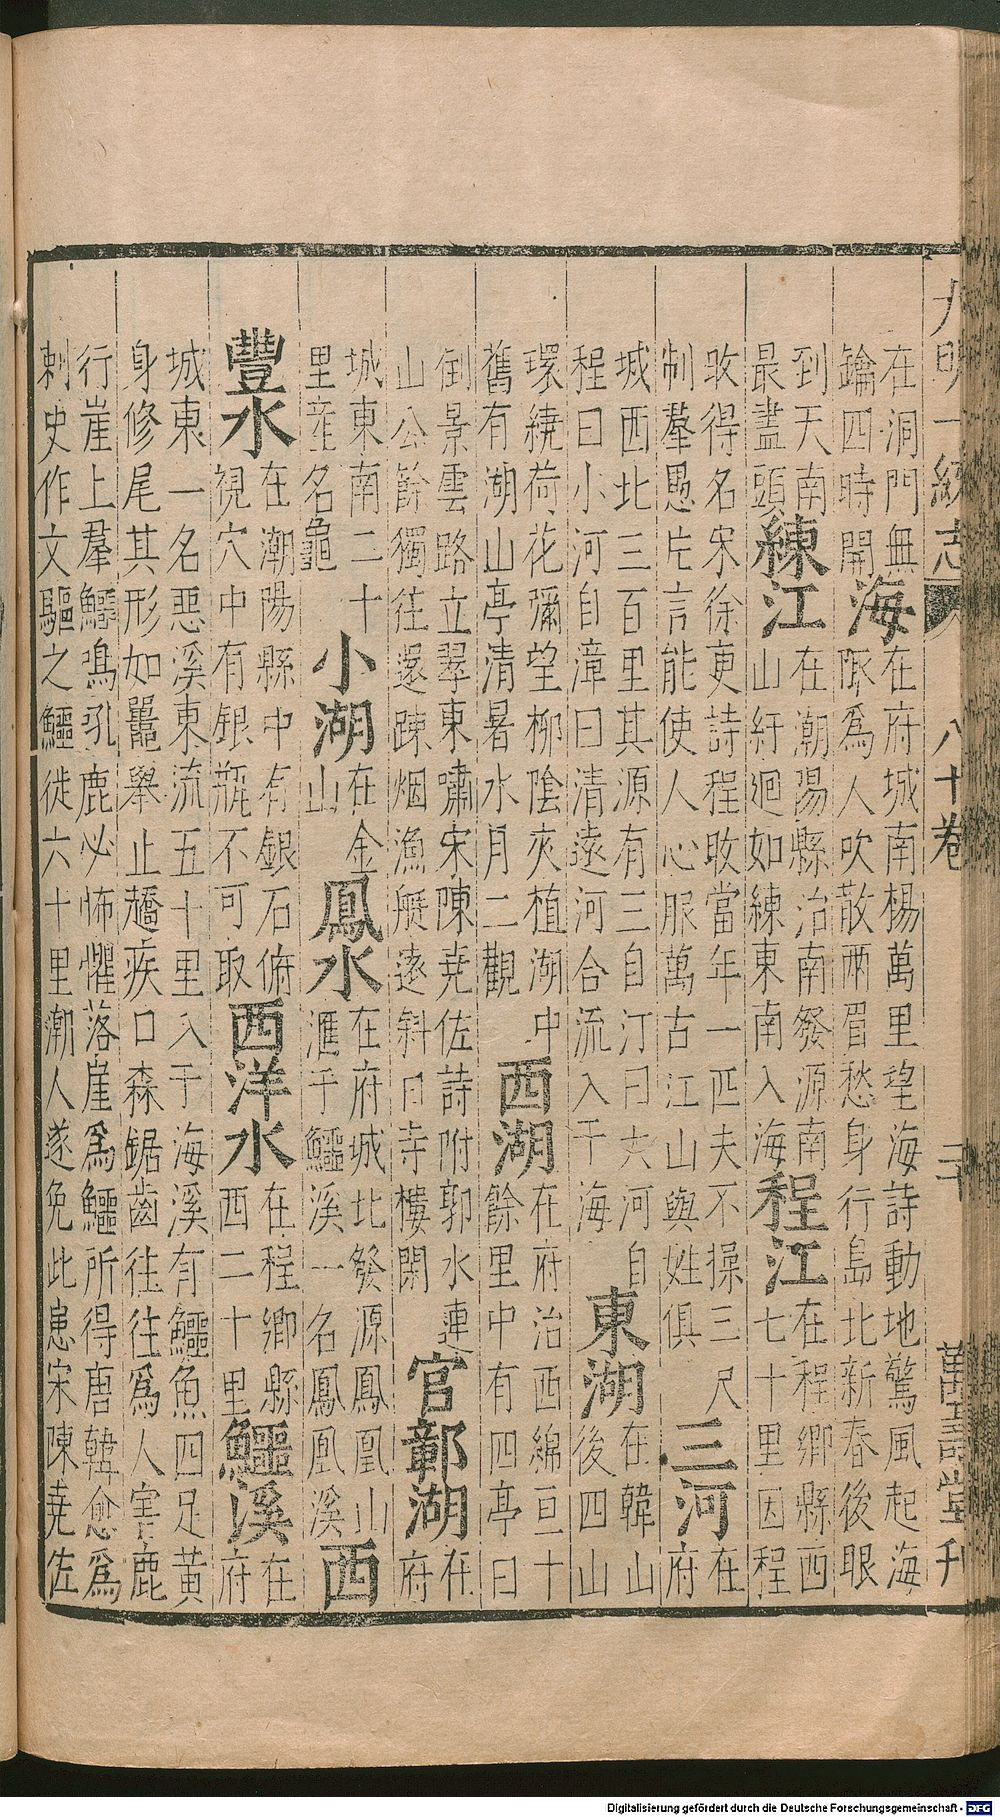 大明一統志 八十卷 二十 萬壽堂刊
在洞門無
鑰四時開
海
在府城南楊萬里望海詩動地驚風起海
陬爲人吹散兩眉愁身行島北新春後眼
到天南
最盡頭
練江
在潮陽縣治南發源南
山紆迴如練東南入海
程江
在程鄉縣西
七十里因程
旼得名宋徐更詩程旼當年一匹夫不操三尺
制羣愚片言能使人心服萬古江山與姓俱
三河
在
府
城西北三百里其源有三自汀曰大河自
程曰小河自漳曰清遠河合流入于海
東湖
在韓山
後四山
環繞荷花彌望柳陰夾植湖中
舊有湖山亭清暑水月二觀
西湖
在府治西綿亘十
餘里中有四亭曰
倒景雲路立翠東嘯宋陳堯佐詩附郭水連
山公餘獨往還疎烟漁艇遠斜日寺樓閑
官鄣湖
在
府
城東南二十
里産名龜
小湖
在金
山
鳳水
在府城北發源鳳凰山
滙于鱷溪一名鳳凰溪
西
豐水
在潮陽縣中有銀石俯
視穴中有銀瓶不可取
西洋水
在程鄉縣
西二十里
鱷溪
在
府
城東一名惡溪東流五十里入于海溪有鱷魚四足黃
身修尾其形如鼉舉止趫疾口森鋸齒往往爲人害鹿
行崖上羣鱷鳴吼鹿必怖懼落崖爲鱷所得唐韓愈爲
刺史作文驅之鱷徙六十里潮人遂免此患宋陳堯佐
Digitalisierung gefördert durch die Deutsche Forschungsgemeinschaft - DFG